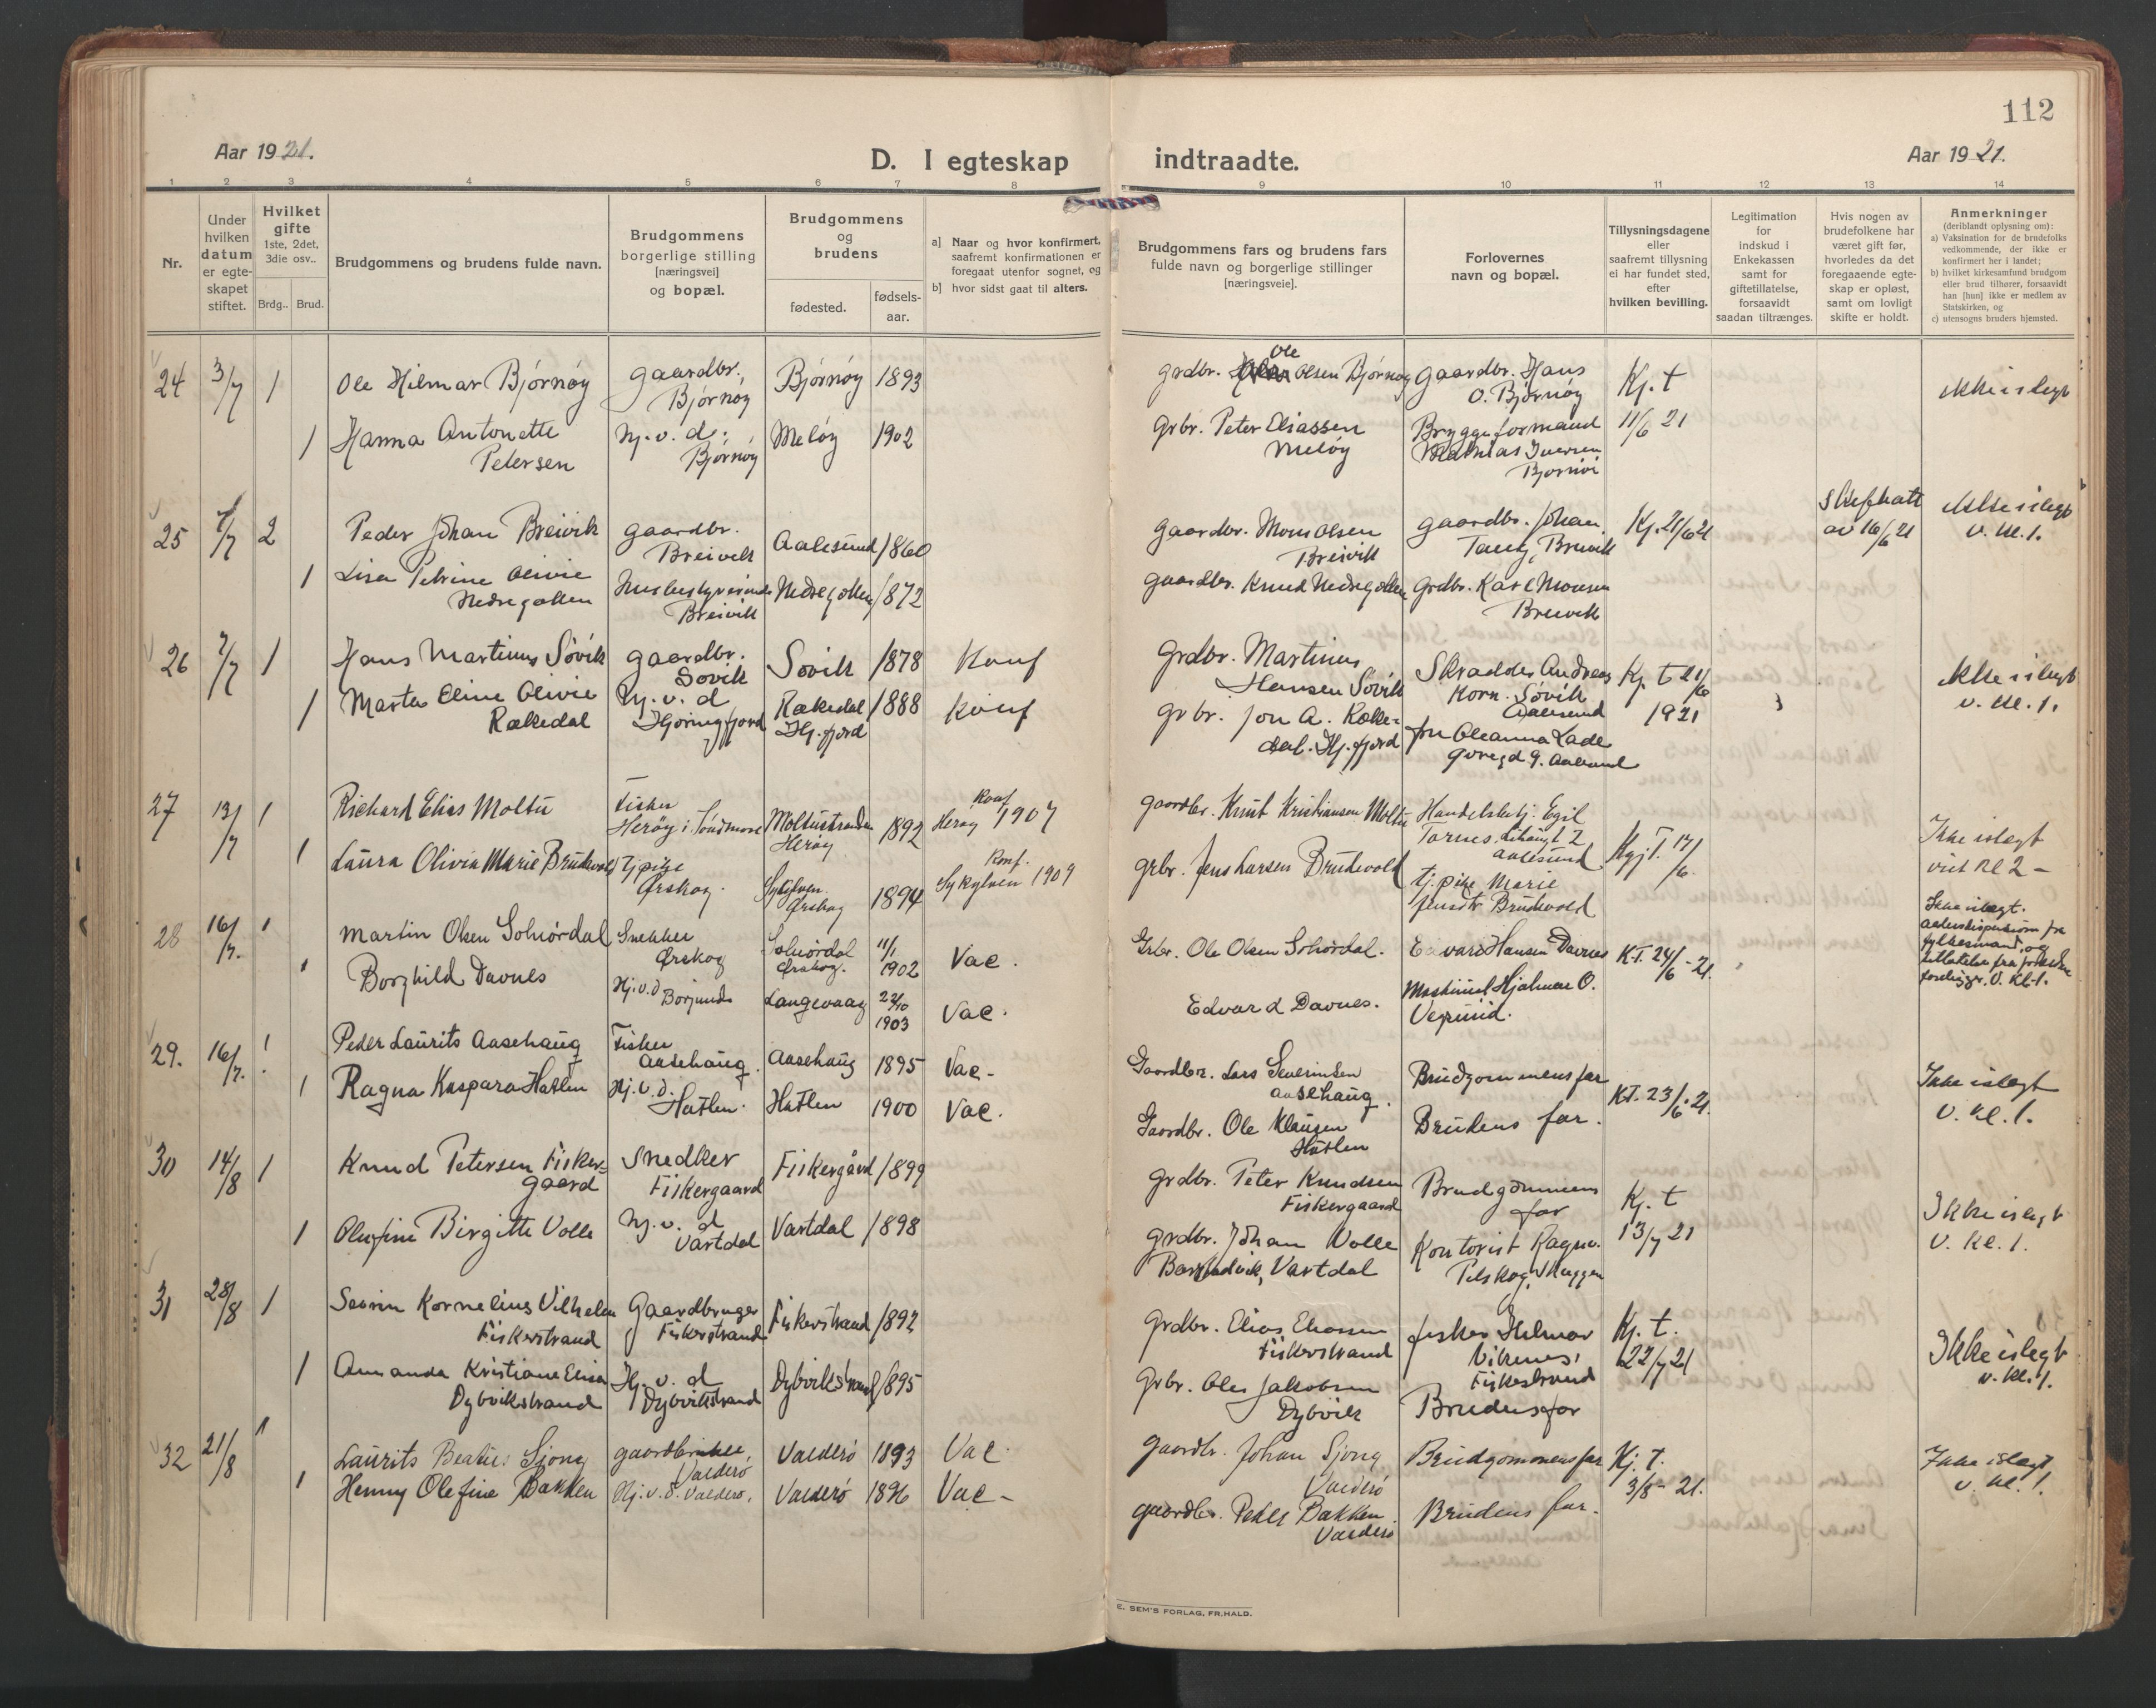 112
Aar 1921.
D. I egteskap indtraadte.
Aar 1921.
1 2 3 4 5 6 7 8 9 10 11 12 13 14
Nr.
Under hvilken datum er egteskapet stiftet.
Hvilket gifte
1ste, 2det, 3die osv..
Brdg.. Brud.
Brudgommens og brudens fulde navn.
Brudgommens
borgerlige stilling
[næringsvei]
og bopæl.
Brudgommens
og
brudens
fødested.
fødsels-
aar.
a] Naar og hvor konfirmert,
saafremt konfirmationen er
foregaat utenfor sognet, og
b] hvor sidst gaat til alters.
Brudgommens fars og brudens fars
fulde navn og borgerlige stillinger
[næringsveie].
Forlovernes
navn og bopæl.
Tillysningsdagene
eller
saafremt tillysning
ei har fundet sted,
efter
hvilken bevilling.
Legitimation
for
indskud i
Enkekassen
samt for
giftetillatelse,
forsaavidt
saadan tiltrænges.
Hvis nogen av
brudefolkene har
været gift før,
hvorledes da det
foregaaende egte-
skap er opløst,
samt om lovligt
skifte er holdt.
Anmerkninger
(deriblandt oplysning om):
a) Vaksination for de brudefolks
vedkommende, der ikke er
konfirmert her i landet;
b) hvilket kirkesamfund brudgom
eller brud tilhører, forsaavidt
han [hun] ikke er medlem av
Statskirken, og
c) utensogns bruders hjemsted.
24 3/7 1 Ole Hilmar Bjørnøy
gaardbr.,
Bjørnøy
Bjørnøy 1893
grdbr. Ole Olsen Bjørnøy
Gaardbr. Hans
O. Bjørnøy
Kj. t
11/6 21
ikke i slegt
1 Hanna Antonette
Petersen
Hj. v. d.
Bjørnøy
Meløy 1902
Grbr. Peter Eliassen
Meløy
Bryggeformand
Mathias Iversen
Bjørnøi
25 7/7 2 Peder Johan Breivik
gaardbr.
Breivik
Aalesund 1860
gaardbr. Mons Olsen
Breivik
gaardbr. Johan
Breivik
Kj. 21/6 21
av 16/6 21
ikke i slegt
v. kl. 1.
1 Lisa Petrine Olivie
Nedregotten
Husbestyrerinde
Breivik
Nedregotten 1872
gaardbr. Knud Nedregotten
Grdbr. Karl Monsen
Breivik
26 7/7 1 Hans Martinus Søvik
gaardbr.
Søvik
Søvik 1878 Konf
Grdbr. Martinus
Hansen Søvik
Skrædder Andreas
Korn. Søvik
Aalesund
Kj. t 21/6
1921
ikke i slegt
v. kl. 1.
1 Marta Eline Olivie
Rækedal
Hj. v. d
Hjøringfjord
Rækedal
Hj. fjord
1888 Konf
Gr br. Jon A. Række-
dal. Hj. fjord
fru Oleanna Lade
27 13/7 1 Richard Elias Moltu
Fisker
Herøy i Søndmøre
Moltustranden
Herøy
1892
Konf
Herøy 1907
gaardbr. Knut Kristiansen Moltu
Handelsbetj. Egil
Tornes
Aalesund
Kj. T. 17/6.
Ikke i slegt
viet kl 2 –
1 Laura Olivia Marie Brudevold
Tj pike
Ørskog.
Sykylven.
Ørskog
1894
Konf.
Sykylven 1909
grbr. Jens Larsen Brudevold
tj. pike Marie
Jensdtr Brudevold
28 16/7. 1 Martin Olsen Solnørdal
Snekker
Ørskog
Solnørdal
Ørskog.
11/1
1902
Vac.
Grbr. Ole Olsen Solnørdal.
Edvard Hansen Davnes
K.T. 24/6 - 21.
Ikke i slegt.
aldersdispensasjon fra
fylkesmand, og
tillatelse fra
v. kl. 1.
1 Borghild Davnes
Hj. v. d
Borgund
Langevaag
23/10
1903
Vac.
Edvard Davnes.
Maskinist Hjalmar O.
Vegsund.
29. 16/7. 1 Peder Laurits Aasehaug
Fisker
Aasehaug.
Aasehaug 1895 Vac -
Gaardbr. Lars Severinsen
Aasehaug.
Brudgommens far
K.T. 23/6. 21.
Ikke i slegt
v. kl. 1.
1 Ragna Kaspara Hatlen
Hj. v. d.
Hatlen.
Hatlen 1900 Vac.
Gaardbr. Ole Klausen
Hatlen
Brudens far.
30 14/8 1 Knud Petersen Fisker-
gaard
Snedker
Fiskergaard
Fiskergård 1899
grdbr. Peter Knudsen
Fiskergaard
Brudgommens
far
Kj. t
13/7 21
Ikke i slegt
v. kl. 1.
1 Olufine Birgitte Volle
Hj. v. d
Vartdal
Vartdal 1898
grdbr. Johan Volle
Barstadvik, Vartdal
Kontorist Ragnv.
31 28/8 1 Severin Kornelius Vilhelm
Fiskerstrand
Gaardbruger
Fiskerstrand
Fiskerstrand 1892
Grdbr. Elias Eliassen
Fiskerstrand
fisker Hilmar
Vikenes,
Fiskestrand
Kj. t.
22/7 21
Ikke i slegt
v. kl. 1.
1 Amanda Kristiane Elisa
Dybvikstrand
Hj. v. d
Dybvikstrand
Dybvikstrand 1895
Grbr. Ole Jakobsen
Dybvik
Brudens far
32 21/8 1 Laurits Beatus Sjong
gaardbruker,
Valderø
Valderø 1893 Vac.
gaardbr. Johan Sjong
Valderø
Brudgommens far
Kj. t.
3/8 - 21.
Ikke i slegt
v. kl. 1.
1 Henny Olefine Bakken
Hj. v. d. Valderø.
Valderø 1896 Vac -
gaardbr. Peder Bakken.
Valderø
Brudens far.
E. SEM'S FORLAG, FR.HALD.